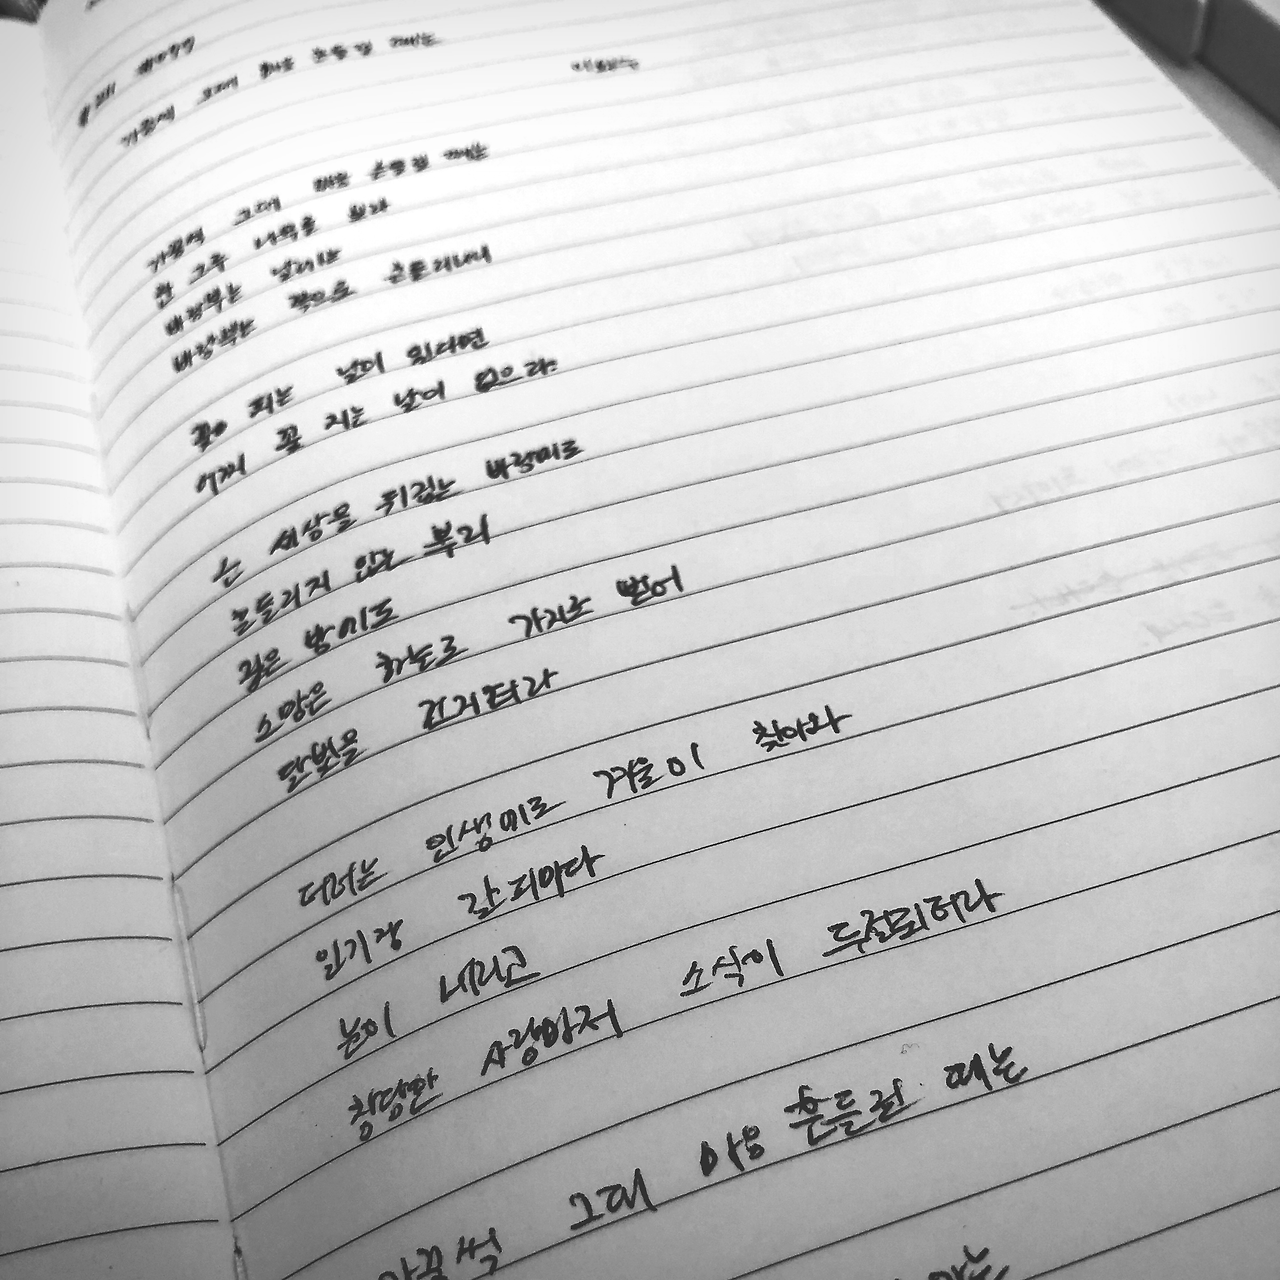 가끔씩 그대 마음 흔들릴 때는
이외수
가끔씩 그대 마음 흔들릴 때는
한 그루 나무를 보라
바람부는 날에는
바람부는 쪽으로 흔들리나니
꽃이 피는 날이 있다면
어찌 꽃 지는 날이 없으랴
온 세상을 뒤집는 바람에도
흔들리지 않는 뿌리
깊은 밤에도
소망은 하늘로 가지를 뻗어
달빛을 건지더라
더러는 인생에도 겨울이 찾아와
일기장 갈피마다
눈이 내리고
참담한 사랑마저 소식이 두절되더라
가끔씩 그대 마음 흔들릴 때는